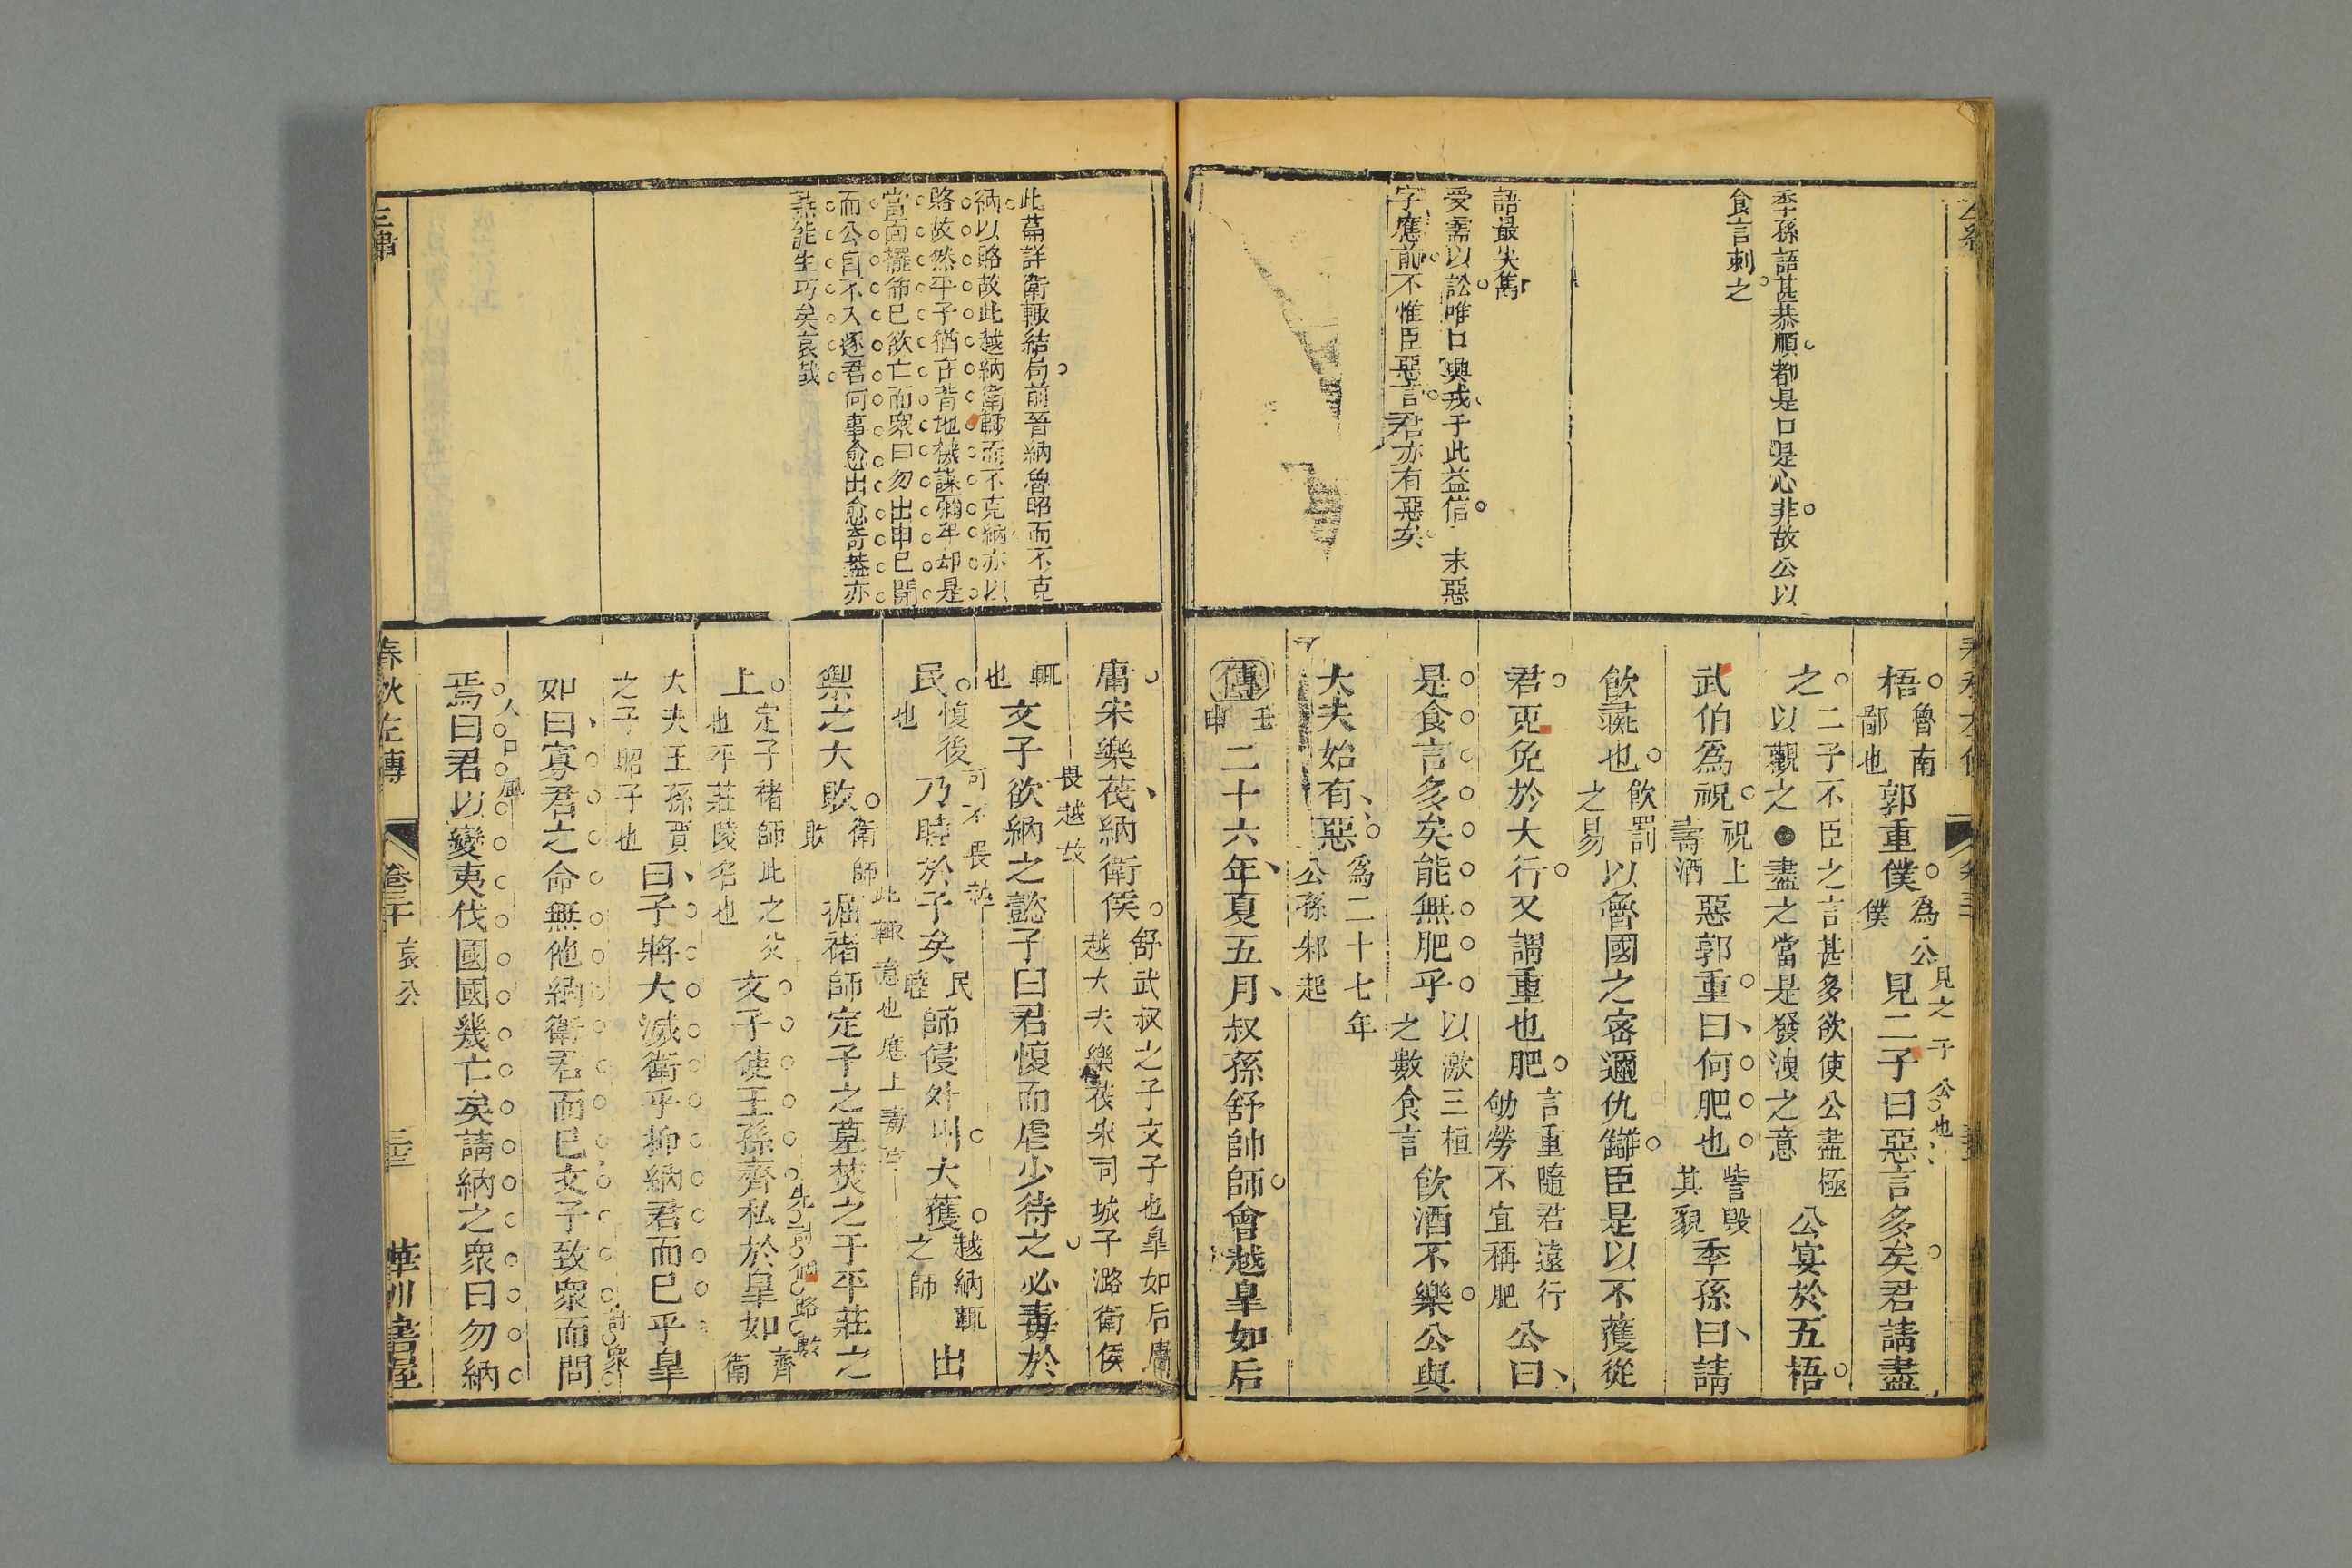 季孫語甚恭順都是口是心非故公以
食言刺之
語最尖雋
受需以訟唯口興戎于此益信 末惡
字應前不惟臣惡言君亦有惡矣
梧魯南鄙也郭重僕為公僕見二子曰惡言多矣君請盡
見之于公也
之二子不臣之言甚多欲使公盡極以觀之●盡之當是發洩之意公宴於五梧
武伯為祝祝上壽酒惡郭重曰何肥也訾毀其貌季孫曰請
飲彘也飲罰之易以魯國之密邇仇讎臣是以不獲從
君克免於大行又謂重也肥言重隨君遠行劬勞不宜稱肥公曰
是食言多矣能無肥乎以激三桓之數食言飲酒不樂公與
大夫始有惡為二十七年公孫邾起
傳壬申二十六年夏五月叔孫舒帥師會越皐如后
此篇詳衛輒結局前晉納魯昭而不克
納以賂故此越納衛輒而不克納亦以
賂故然平子猶在背地機謀彌牟却是
當面擺佈已欲亡而衆曰勿出申已開
而公自不入逐君何事愈出愈奇葢亦
熟能生巧矣哀哉
庸宋樂茷納衛侯舒武叔之子文子也皐如后庸越大夫樂茷宋司城子潞衛侯
輒也文子欲納之懿子曰君愎而虐少待之必毒於
畏越故
民愎後也乃睦於子矣民睦師侵外州大獲越納輒之師出
禦之大敗衛師敗掘褚師定子之墓焚之于平莊之
此輒意也應上毒字
上定子褚師此之父也平莊陵名也文子使王孫齊私於皐如齊衛
大夫王孫賈之子昭子也曰子將大滅衛乎抑納君而已乎皐
如曰寡君之命無他納衛君而已文子致衆而問
焉曰君以蠻夷伐國國幾亡矣請納之衆曰勿納
春秋左傳 卷三十 哀公 華川書屋